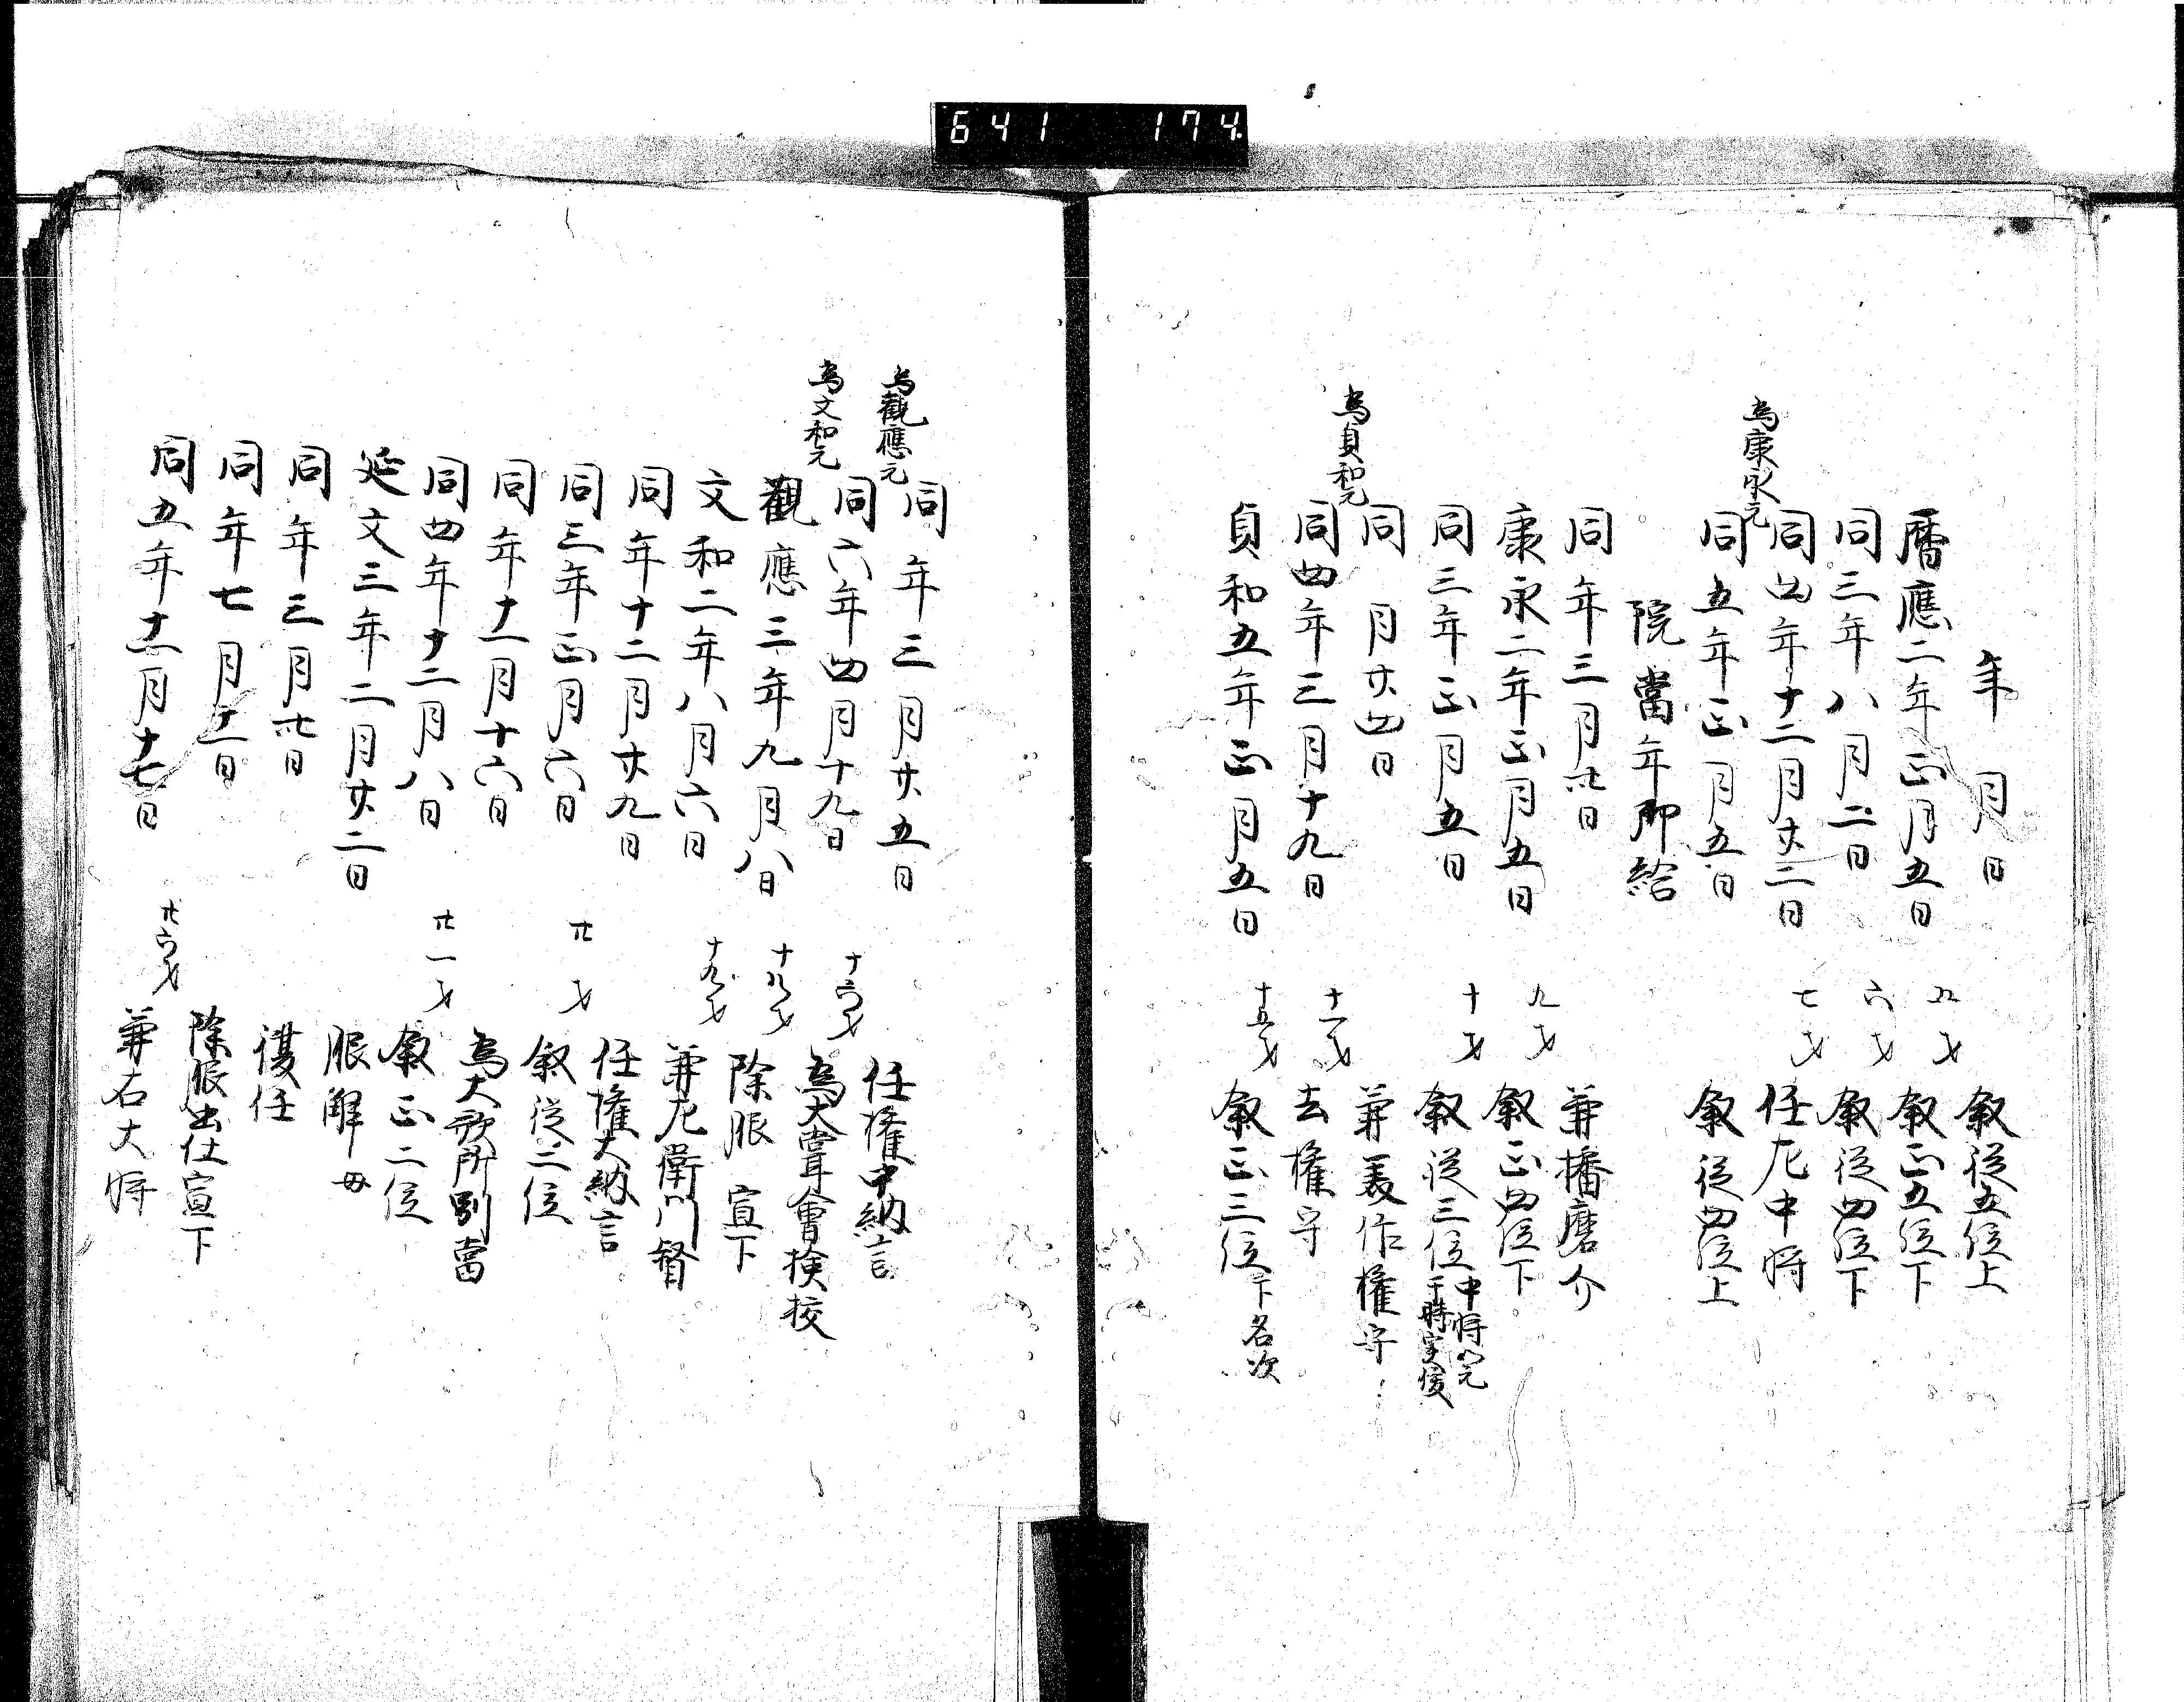 641 174
年 月 日 叙従五位上
暦應二年正月五日 五才 叙正五位下
同三年八月二日 六才 叙従四位下
同四年十二月廿二日 七才 任左中將
為康永元
同五年正月五日 叙従四位上
院當年御給
同年三月卅日 兼播磨介
康永二年正月五日 九才 叙正四位下
同三年正月五日 十才 叙従三位 中將如元 于時實俊
同 月廿四日 兼美作權守
為貞和元
同四年三月十九日 十一才 去權守
貞和五年正月五日 十五才 叙正三位 下名次
同年三月廿五日 任權中納言
為觀應元
同六年四月十九日 十六才 為大嘗會検校
為文和元
觀應三年九月八日 十八才 除服宣下
文和二年八月六日 十九才 兼左衛門督
同年十二月廿九日 任權大納言
同三年正月六日 廿才 叙従二位
同年十一月十六日 為大歌所別當
同四年十二月八日 廿一才 叙正二位
延文三年二月廿二日 服解 母
同年三月卅日 復任
同年七月十一日 除服出仕宣下
同五年十一月十七日 廿六才 兼右大將